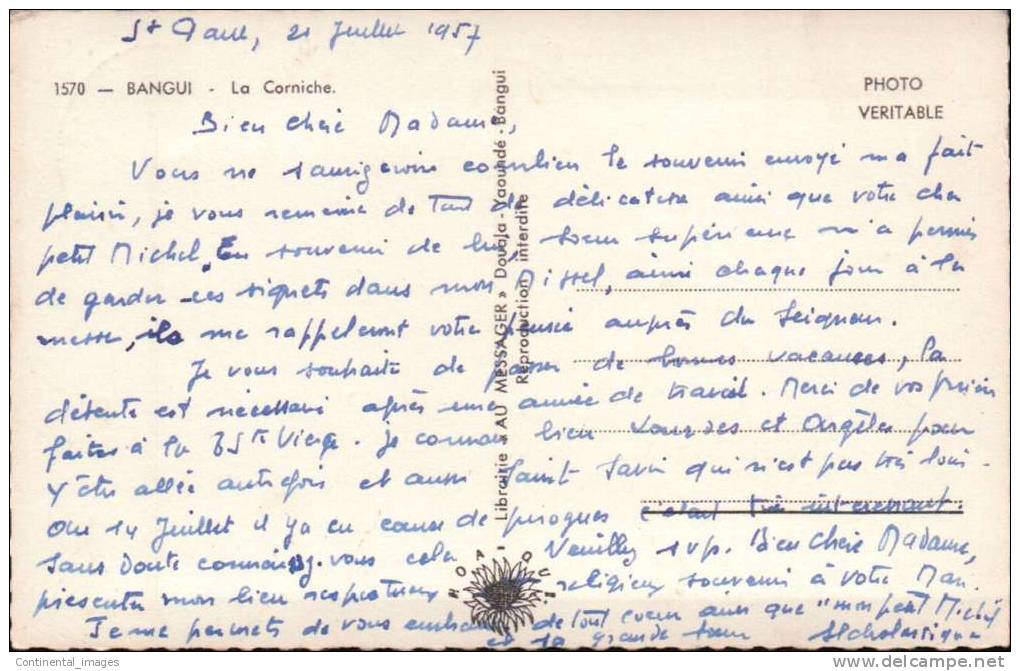 St Paul, 21 Juillet 1957
1570 — BANGUI - La Corniche.
PHOTO
VERITABLE
Bien chère Madame,
Vous ne combien le souvenir envoyé m'a fait
plaisir, je vous remercie de tant de délicatesse ainsi que votre cher
petit Michel. En souvenir de lui, Soeur supérieure m'a permis
de garder ces signets dans mon Missel, ainsi chaque jour à la
messe, ils me rappelleront votre pensée auprès du Seigneur.
Je vous souhaite de passer de bonnes vacances, la
détente est nécessaire après une année de travail. Merci de vos prières
faites à la Ste Vierge. Je connais bien Lourdes et Argelès pour
y être allée autrefois et aussi Saint Savin qui n'est pas très loin.
Au 14 Juillet il y a eu course de pirogues c'était très intéressant.
Sans doute connaissez-vous cela. Veuillez s.v.p. Bien chère Madame,
présenter mon bien respectueux religieux souvenir à votre Mari
Je me permets de vous embrasser de tout coeur ainsi que "mon petit Michel
et sa grande soeur Scholastique
Librairie « AU MESSAGER » Douala - Yaoundé - Bangui
Reproduction interdite
HOA-QUI
Continental_images
delcampe.net